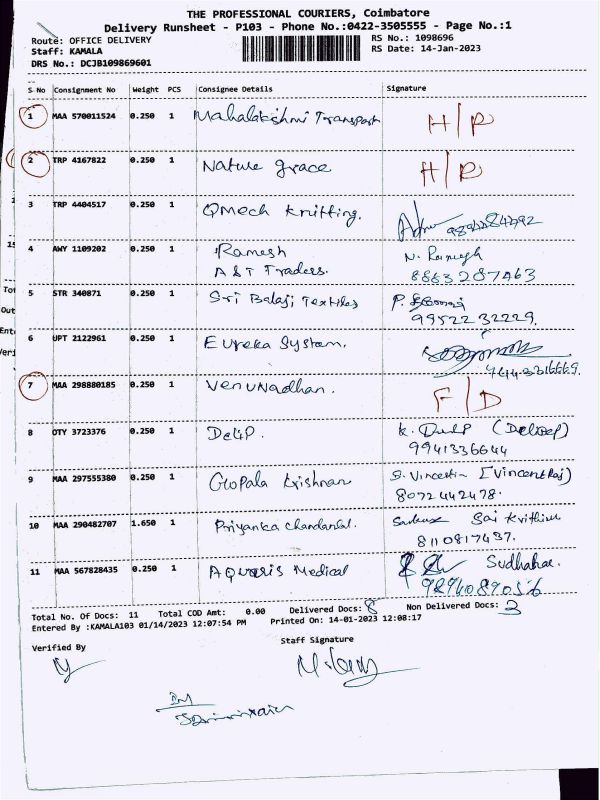 THE PROFESSIONAL COURIERS, Coimbatore
Delivery Runsheet - P103 - Phone No.:0422-3505555 - Page No.:1
Route: OFFICE DELIVERY RS No.: 1098696
Staff: KAMALA RS Date: 14-Jan-2023
DRS No.: DCJB109869601
S No Consignment No Weight PCS Consignee Details Signature
1 MAA 570011524 0.250 1 Mahalakshmi Transport H/R
2 TRP 4167822 0.250 1 Nature grace H/R
3 TRP 4404517 0.250 1 Qmech knitting.
4 AWY 1109202 0.250 1 Ramesh N. Ramesh
A&T Traders. 8863287463
5 STR 340871 0.250 1 Sri Balaji Textiles P.
9952232229.
6 UPT 2122961 0.250 1 Eureka System.
7 MAA 298880185 0.250 1 Venunadhan. F/D
8 OTY 3723376 0.250 1 Delip. K. (Delieep)
9941336644
9 MAA 297555380 0.250 1 Gopala krishnan S. Vincentin [Vincent Raj]
8072442478.
10 MAA 290482707 1.650 1 Priyanka chandanlal. Sai
8110817437.
11 MAA 567828435 0.250 1 Aquaris Medical Sudhahar
Total No. Of Docs: 11 Total COD Amt: 0.00 Delivered Docs: 8 Non Delivered Docs: 3
Entered By :KAMALA103 01/14/2023 12:07:54 PM Printed On: 14-01-2023 12:08:17
Verified By Staff Signature